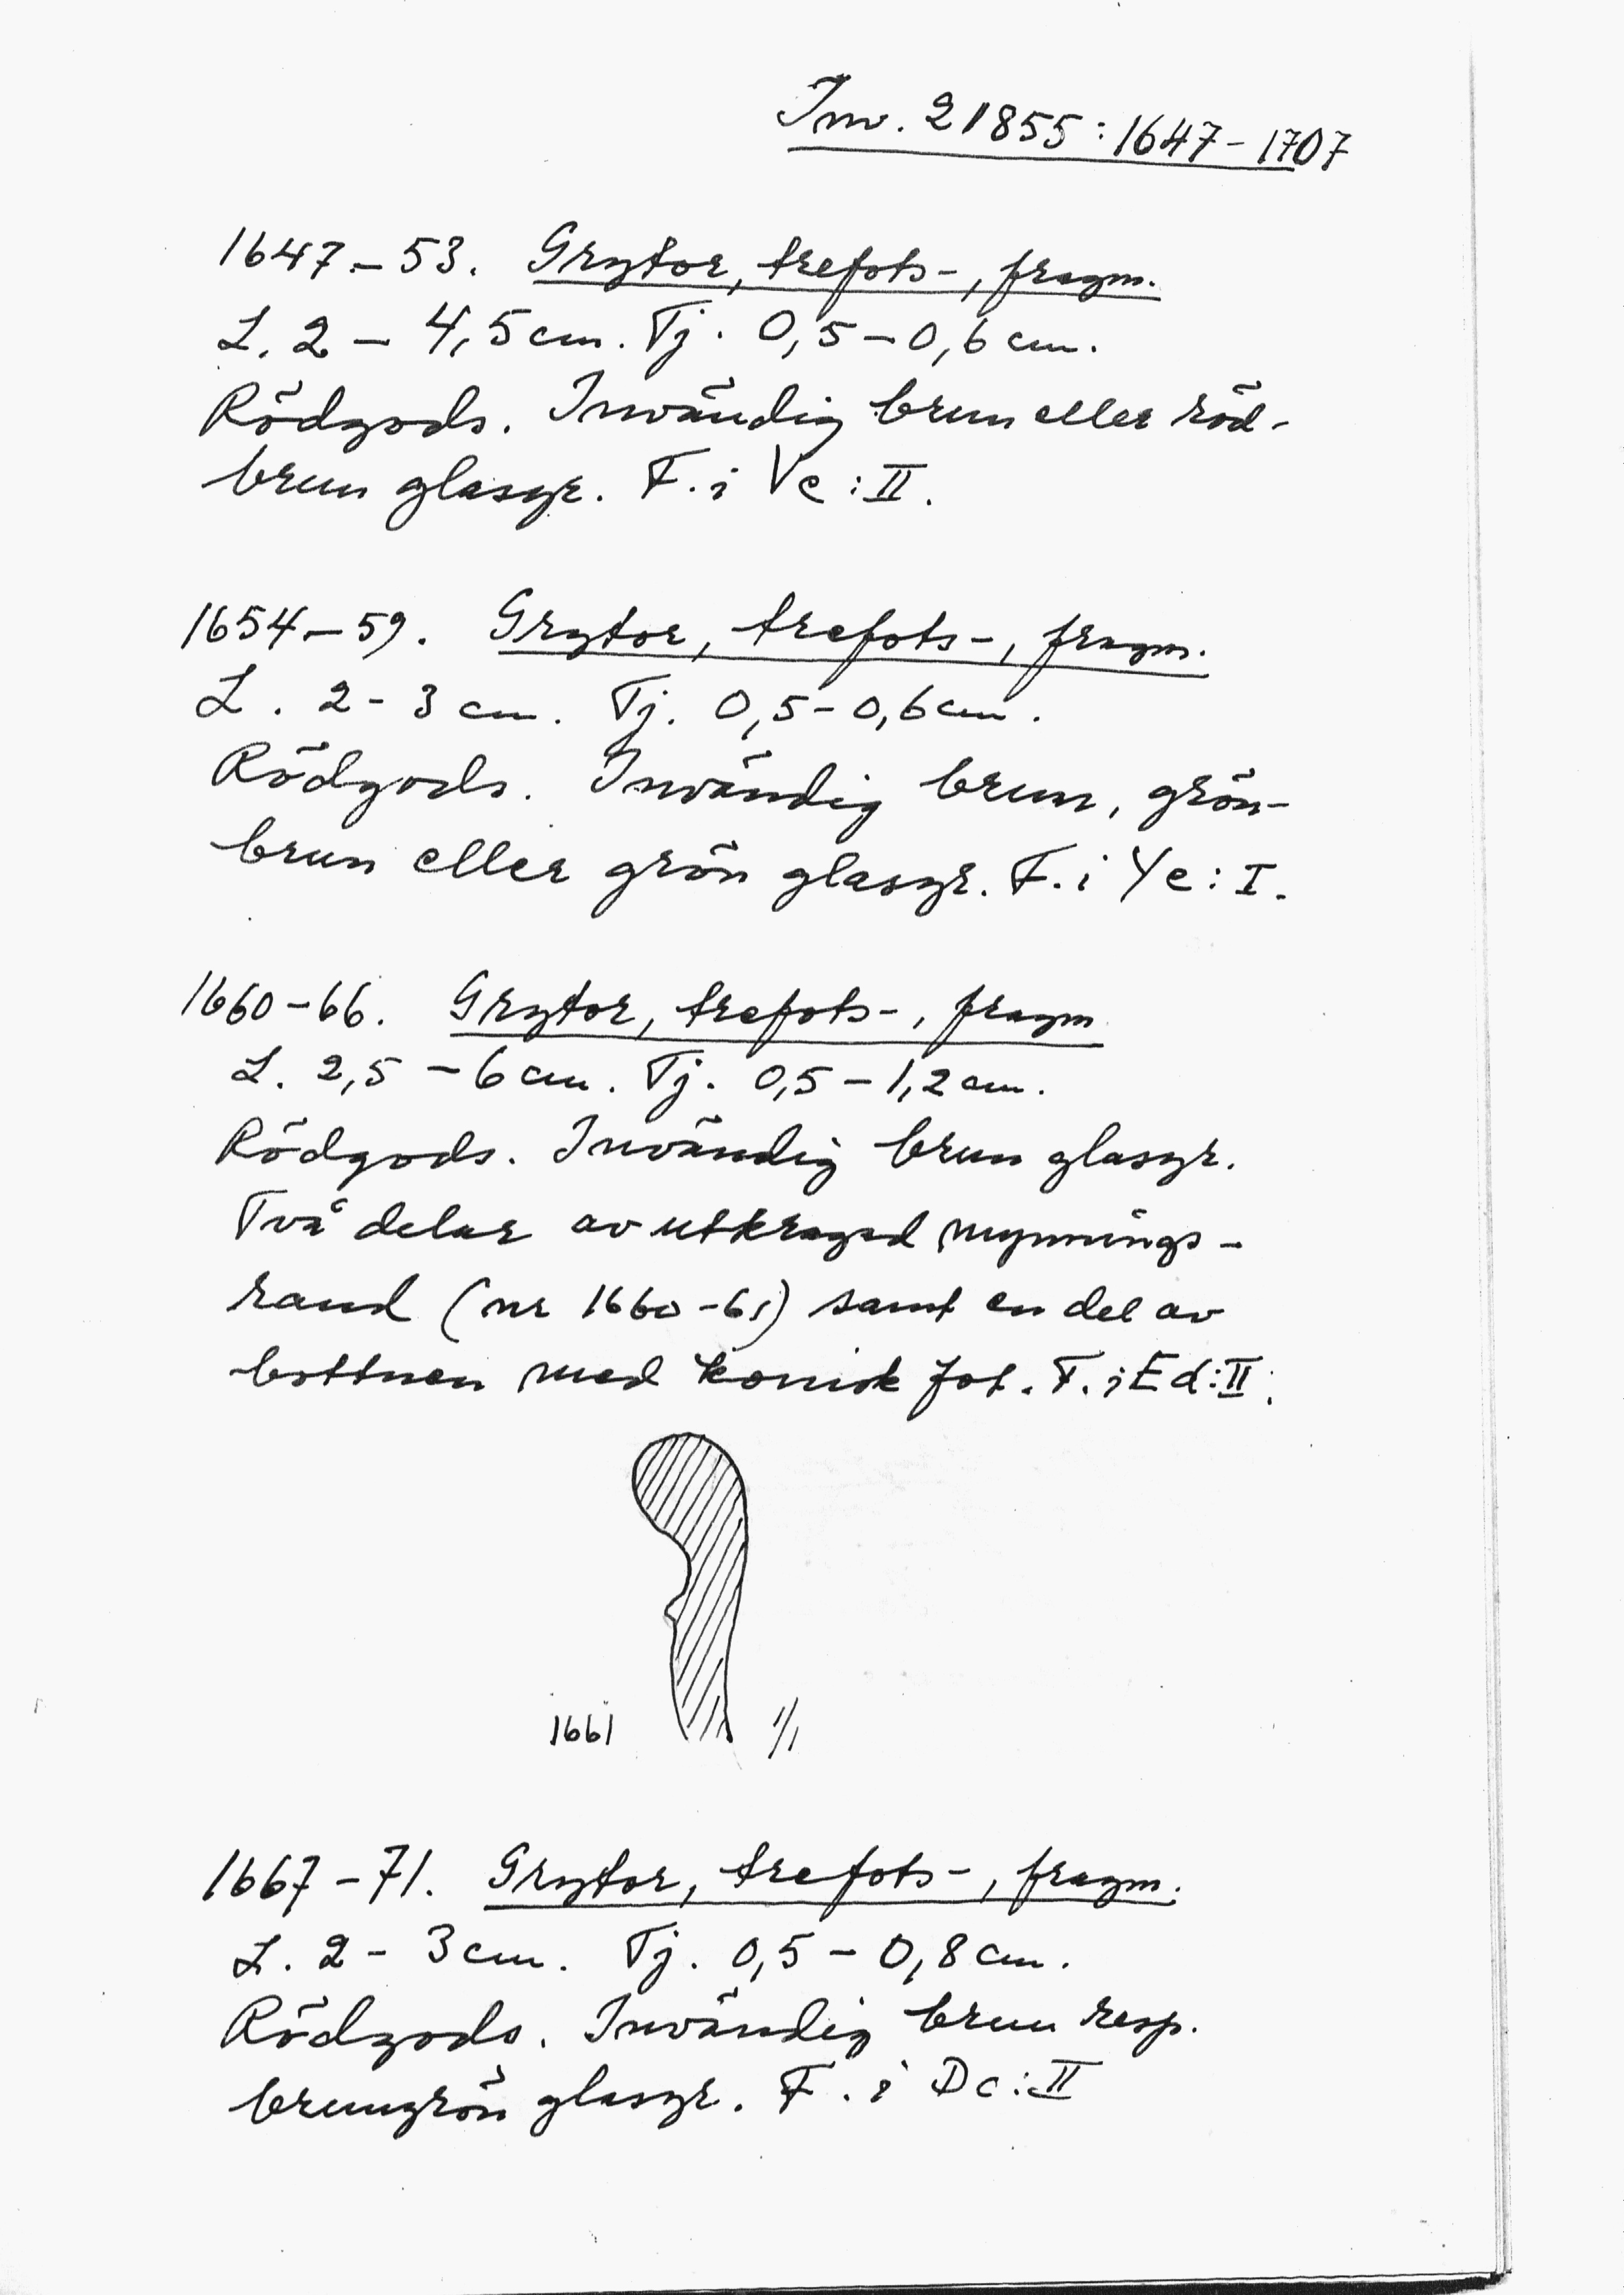 Inv. 21855:1647-1707
1647-53. Grytor, trefots-, fragm.
L. 2 - 4,5 cm. Tj. 0,5-0,6 cm.
Rödgods. Invändig brun eller röd-
brun glasyr. F. i Vc:II.
1654-59. Grytor, trefots-, fragm.
L. 2-3 cm. Tj. 0,5-0,6 cm.
Rödgods. Invändig brun, grön-
brun eller grön glasyr. F. i Yc:I.
1660-66. Grytor, trefots-, fragm
L. 2,5 - 6 cm. Tj. 0,5-1,2 cm.
Rödgods. Invändig brun glasyr.
Två delar av utkragad mynnings-
rand (nr 1660-61) samt en del av
bottnen med konisk fot. F. i Ed:II.
1661 1/1
1667-71. Grytor, trefots-, fragm.
L. 2 - 3 cm. Tj. 0,5 - 0,8 cm.
Rödgods. Invändig brun resp.
brungrön glasyr. F. i Dc:II